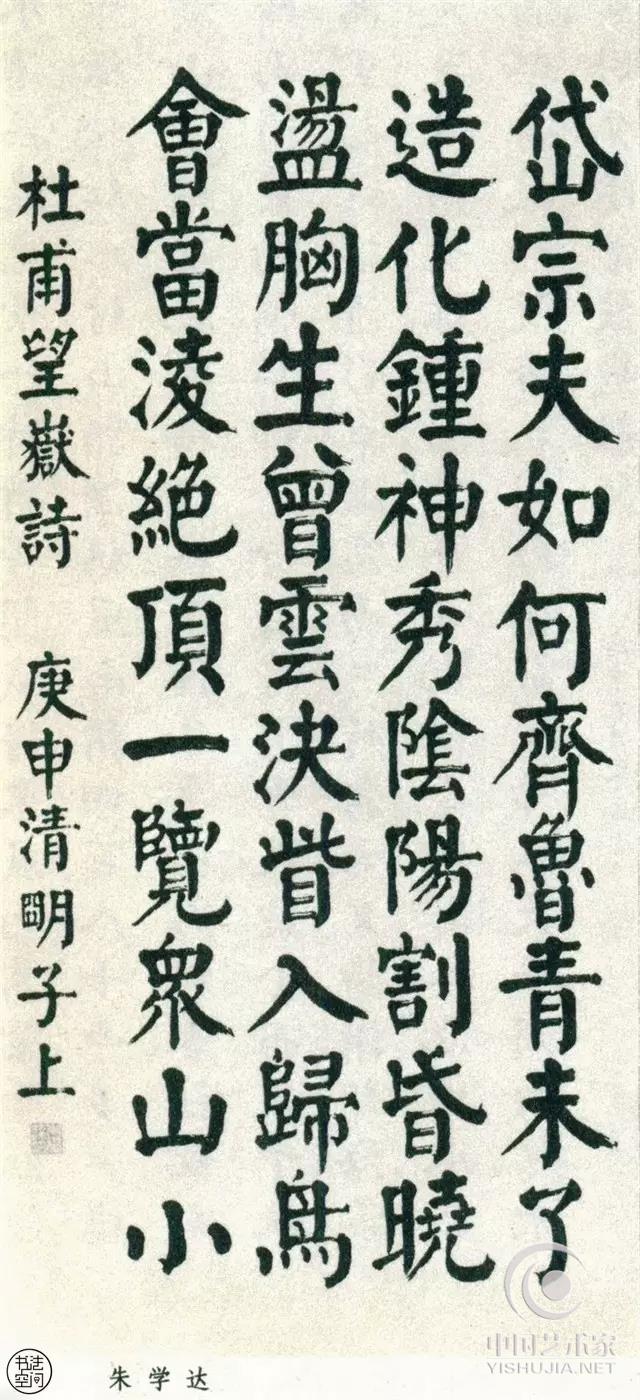 岱宗夫如何齊魯青未了
造化鍾神秀陰陽割昏曉
盪胸生曾雲決眥入歸鳥
會當淩絕頂一覽眾山小
杜甫望嶽詩 庚申清明子上
朱学达
书法空间
中国艺术家
YISHUJIA.NET